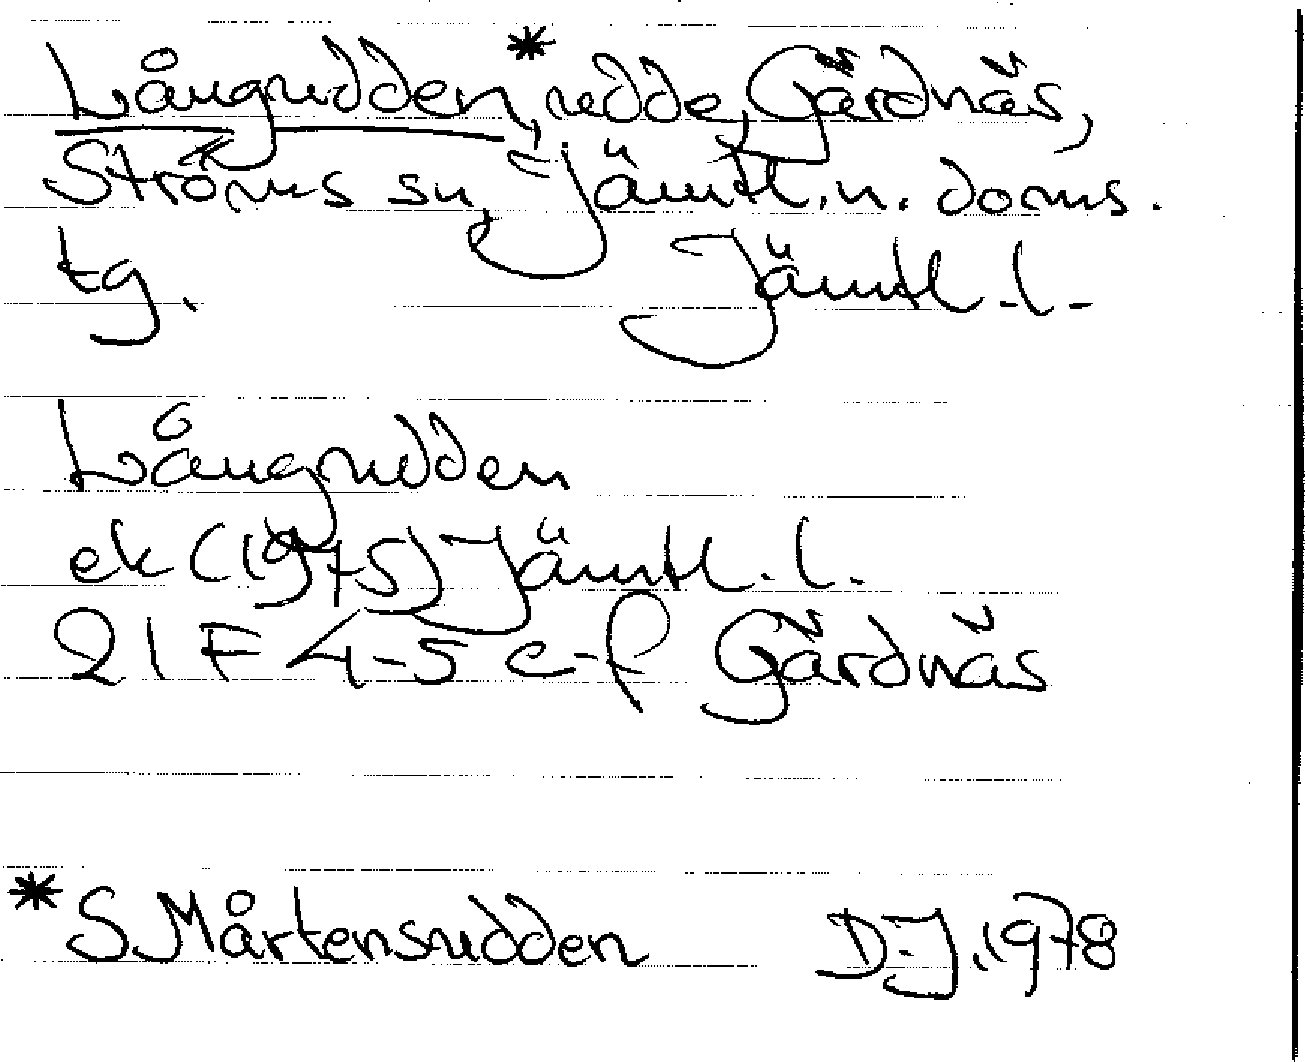 Långudden*, udde, Gärdnäs,
Ströms sn, Jämtl. n. doms.
tg. Jämtl. l.
Långudden
ek (1975) Jämtl. l.
21 F 4-5 e-f Gärdnäs
* S Mårtensudden D-J. 1978